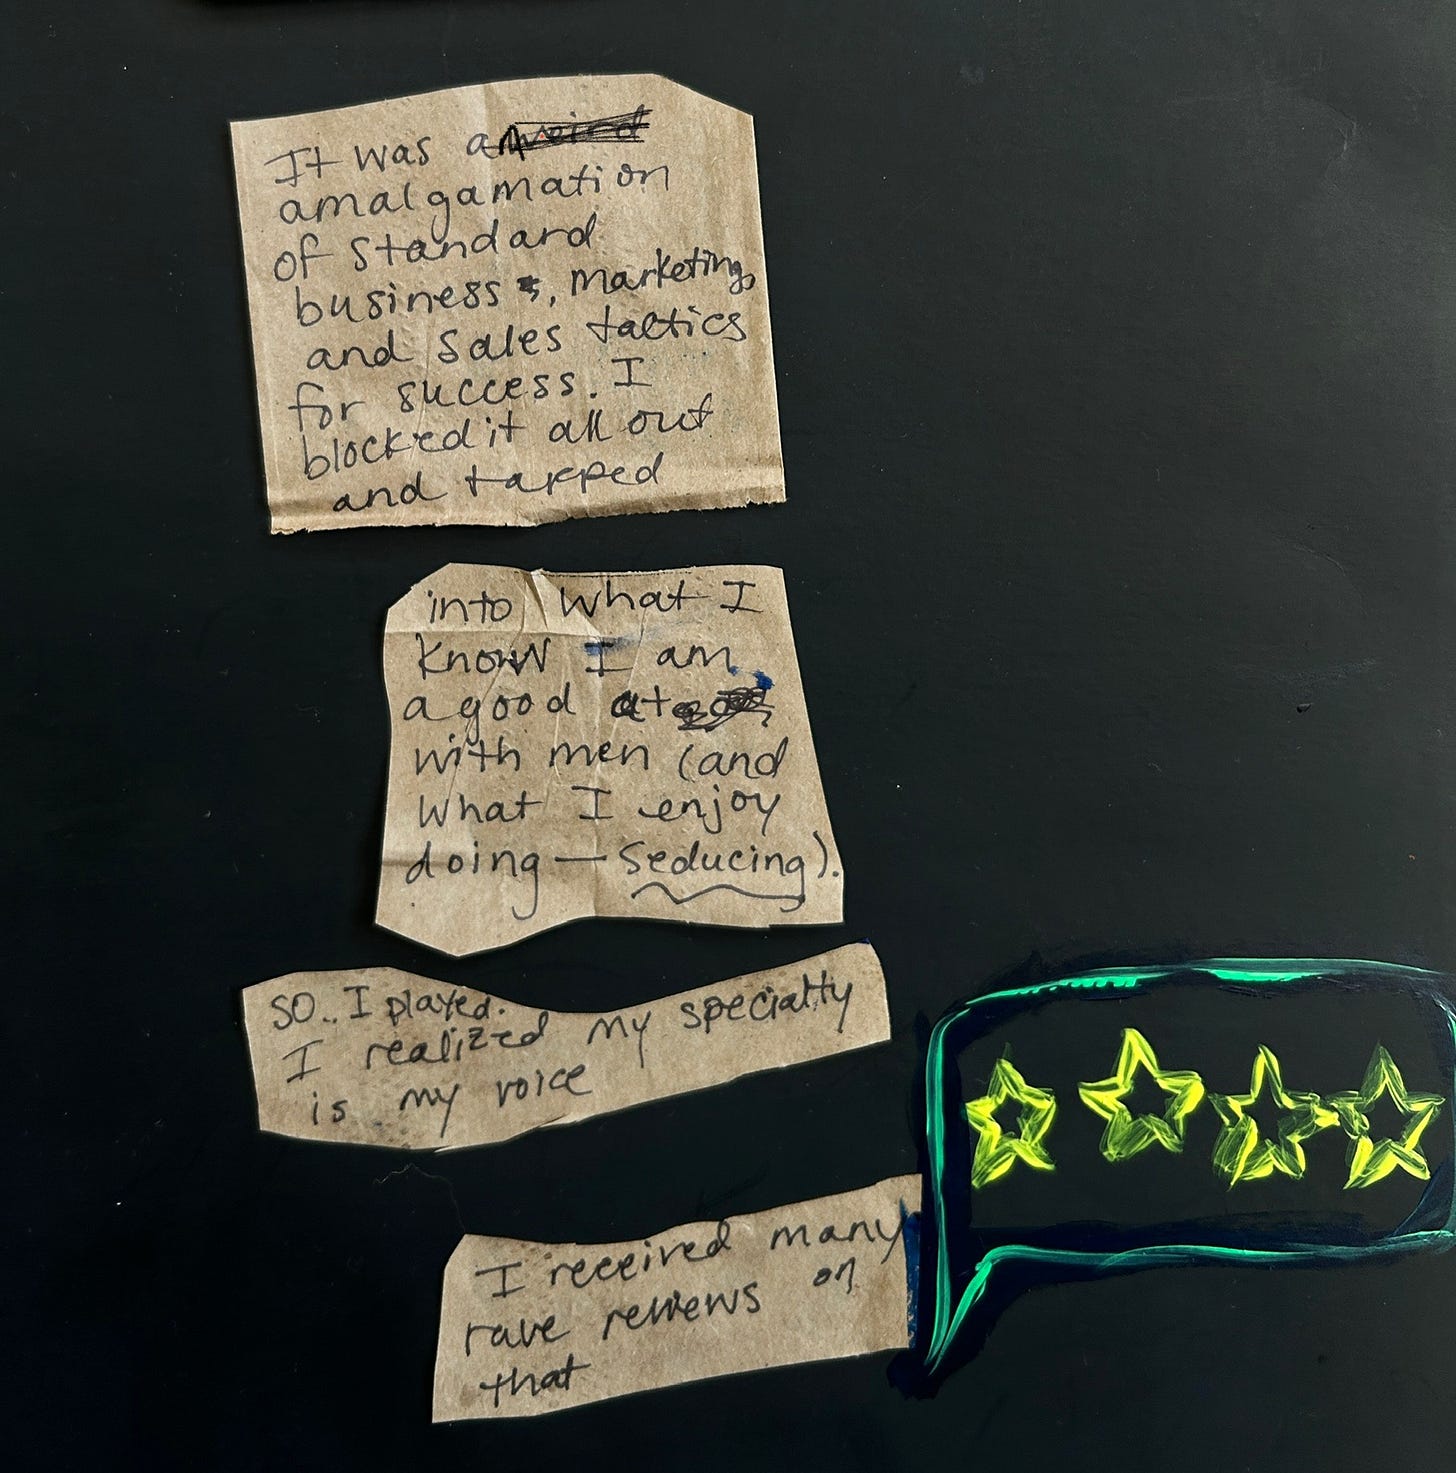 It was an weird
amalgamation
of standard
business, marketing,
and sales tactics
for success. I
blocked it all out
and tapped
into what I
know I am
a good at
with men (and
what I enjoy
doing — seducing).
SO.. I played.
I realized my specialty
is my voice
I received many
rave reviews on
that